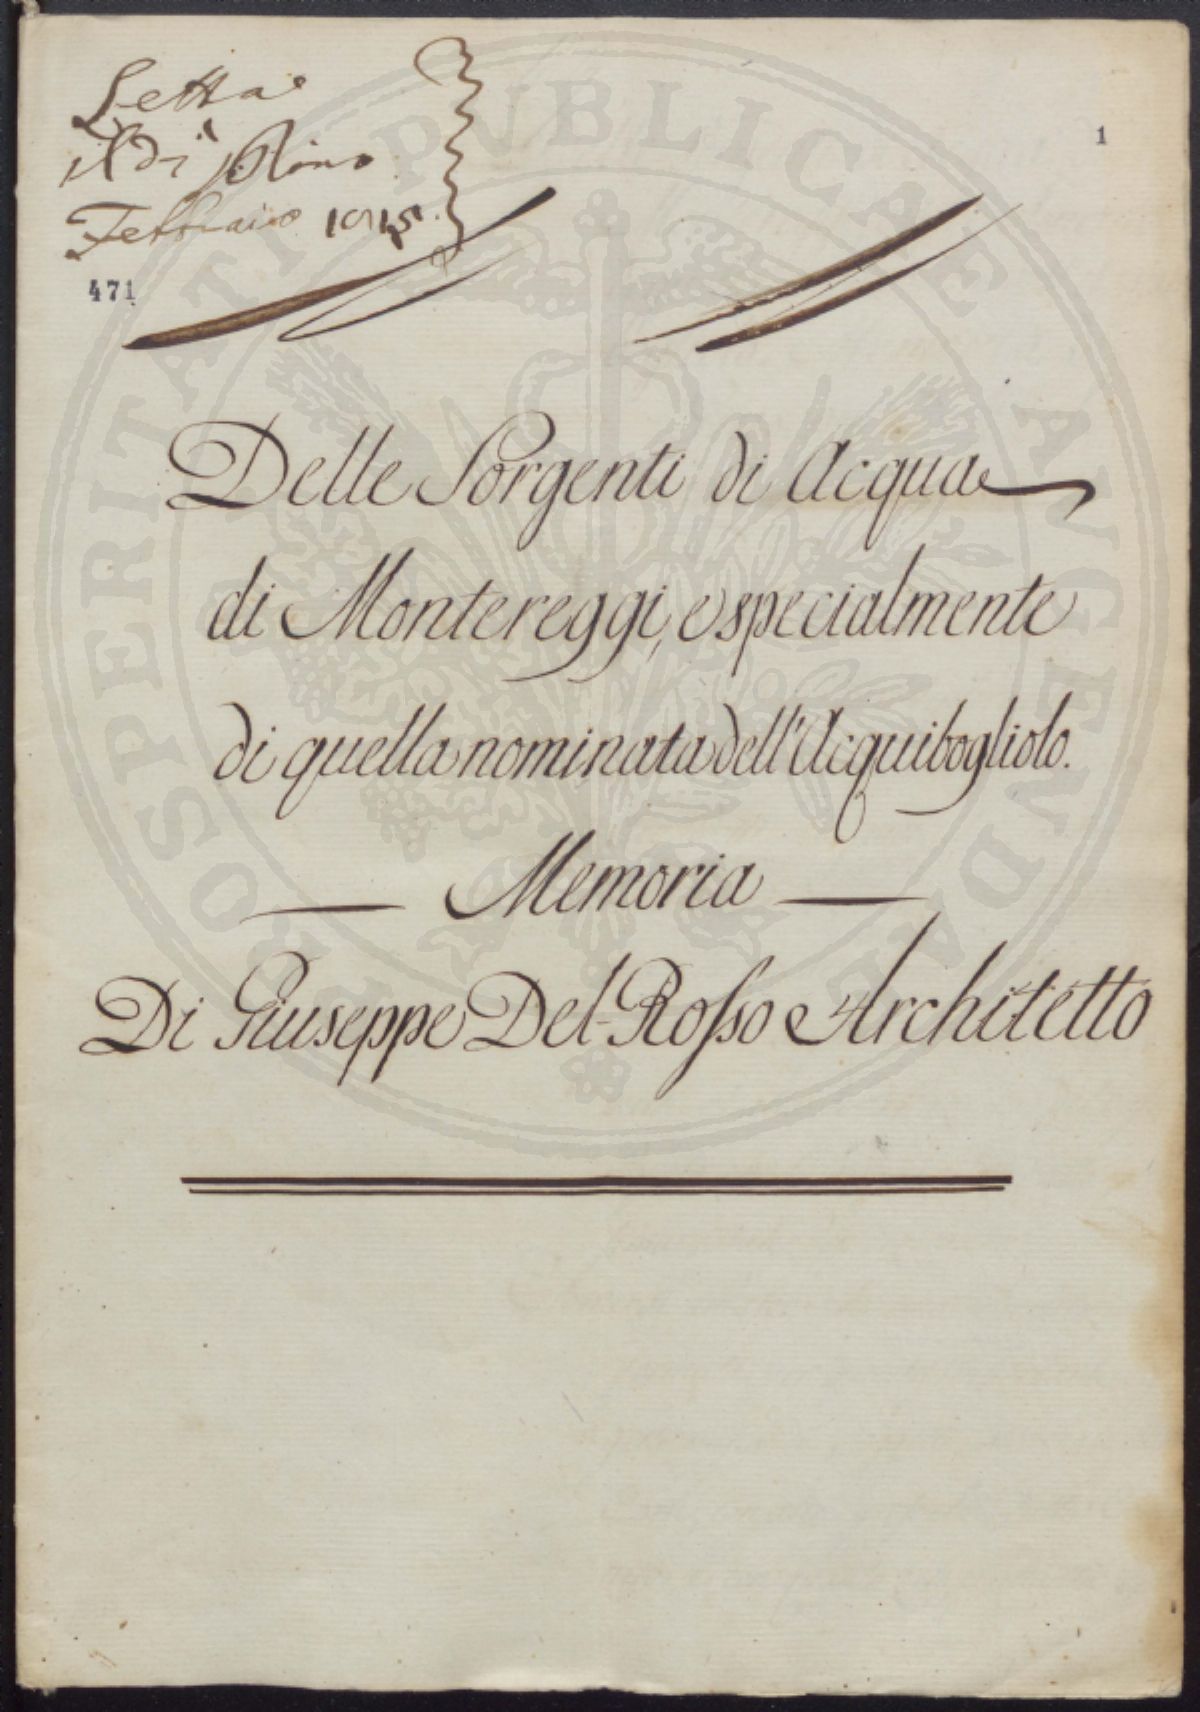 Letta
il dì Primo
Febbraio 1815.
1
471
Delle Sorgenti di Acqua
di Montereggi, e specialmente
di quella nominata dell'Acquibogliolo.
Memoria
Di Giuseppe Del-Rosso Architetto
PROSPERITATI PVBLICAE AVGENDAE